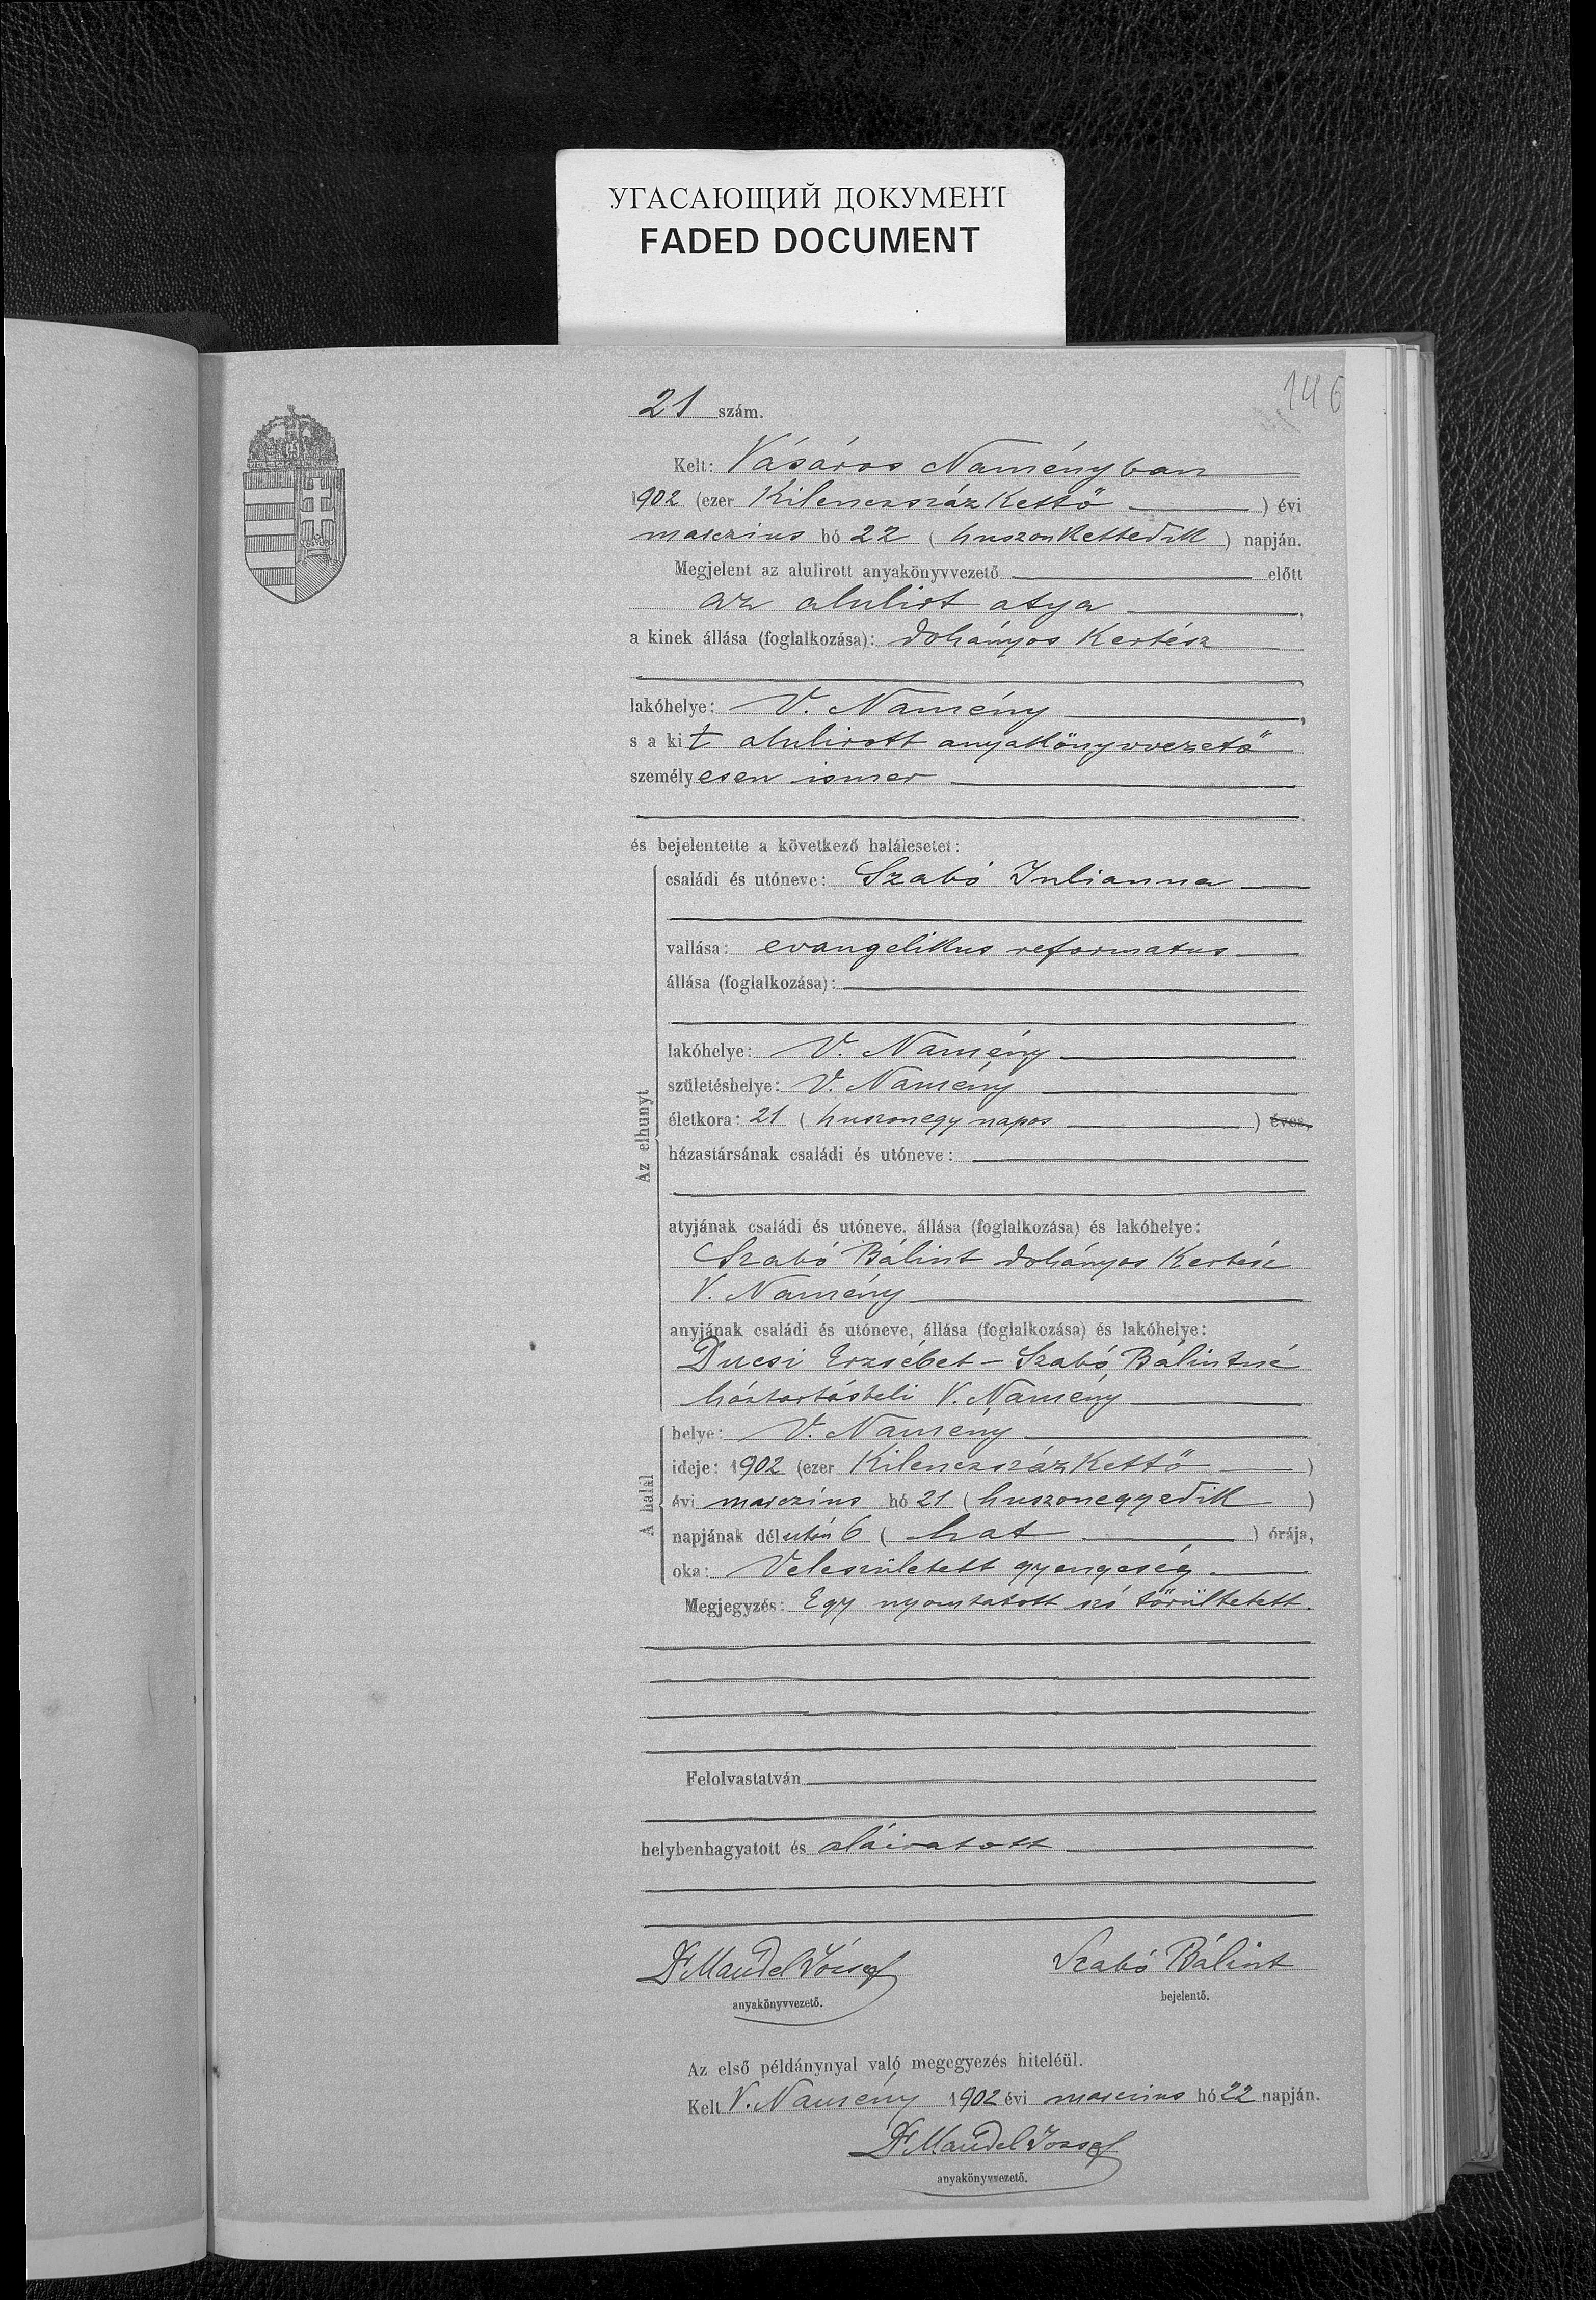 УГАСАЮЩИЙ ДОКУМЕНТ
FADED DOCUMENT
146
21 szám.
Kelt: Vásáros Naményban
1902 (ezer Kilenczszáz Kettő ) évi
marczius hó 22 ( huszonKettediK ) napján.
Megjelent az alulirott anyakönyvvezető előtt
az alulirt atya ,
a kinek állása (foglalkozása): dohányos Kertész
lakóhelye: V. Namény ,
s a kit alulirott anyaKönyvvezető
személyesen ismer
és bejelentette a következő halálesetet:
Az elhunyt
családi és utóneve: Szabó Julianna
vallása: evangeliKus reformatus
állása (foglalkozása):
lakóhelye: V. Namény
születéshelye: V. Namény
életkora: 21 ( huszonegy napos ) éves,
házastársának családi és utóneve:
atyjának családi és utóneve, állása (foglalkozása) és lakóhelye:
Szabó Bálint dohányos Kertész
V. Namény
anyjának családi és utóneve, állása (foglalkozása) és lakóhelye:
Ducsi Erzsébet – Szabó Bálintné
háztartásbeli V. Namény
A halál
helye: V. Namény
ideje: 1902 (ezer Kilenczszáz Kettő )
évi marczius hó 21 ( huszonegyediK )
napjának délután 6 ( hat ) órája,
oka: Veleszületett gyengeség
Megjegyzés: Egy nyomtatott szó törültetett.
Felolvastatván
helybenhagyatott és aláiratott
Dr Mandel József
anyakönyvvezető.
Szabó Bálint
bejelentő.
Az első példánynyal való megegyezés hiteléül.
Kelt V. Namény 1902 évi marczius hó 22 napján.
Dr Mandel József
anyakönyvvezető.